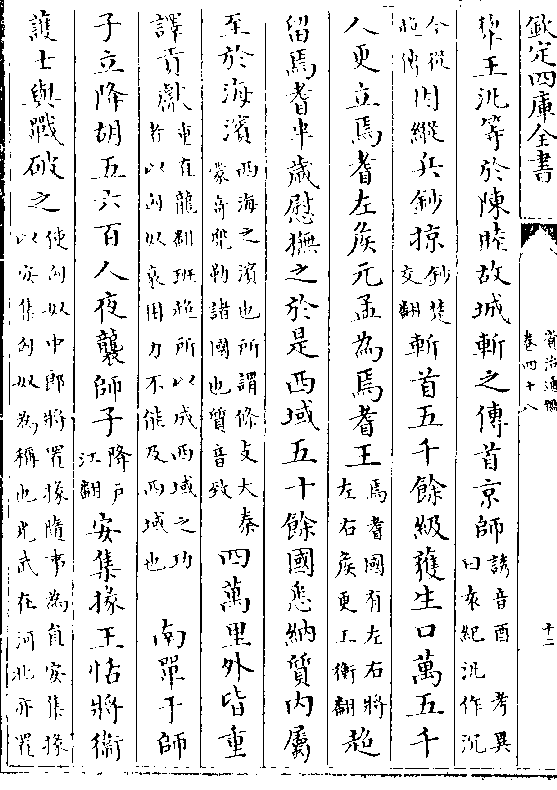 欽定四庫全書
資治通鑑
卷四十八
十二
犂王汎等於陳睦故城斬之傳首京師誘音酉考異
曰袁紀汎作沉
今從
范傳因縱兵鈔掠鈔楚
交翻斬首五千餘級獲生口萬五千
人更立焉耆左侯元孟為焉耆王焉耆國有左右將
左右侯更工衡翻超
留焉耆半歲慰撫之於是西域五十餘國悉納質內屬
至於海濱西海之濱也所謂條支大秦
蒙奇兜勒諸國也質音致四萬里外皆重
譯貢獻重直龍翻班超所以成西域之功
者以匈奴衰困力不能及西域也南單于師
子立降胡五六百人夜襲師子降戶
江翻安集掾王恬將衞
護士與戰破之使匈奴中郎將置掾隨事為員安集掾
以安集匈奴為稱也光武在河北亦置